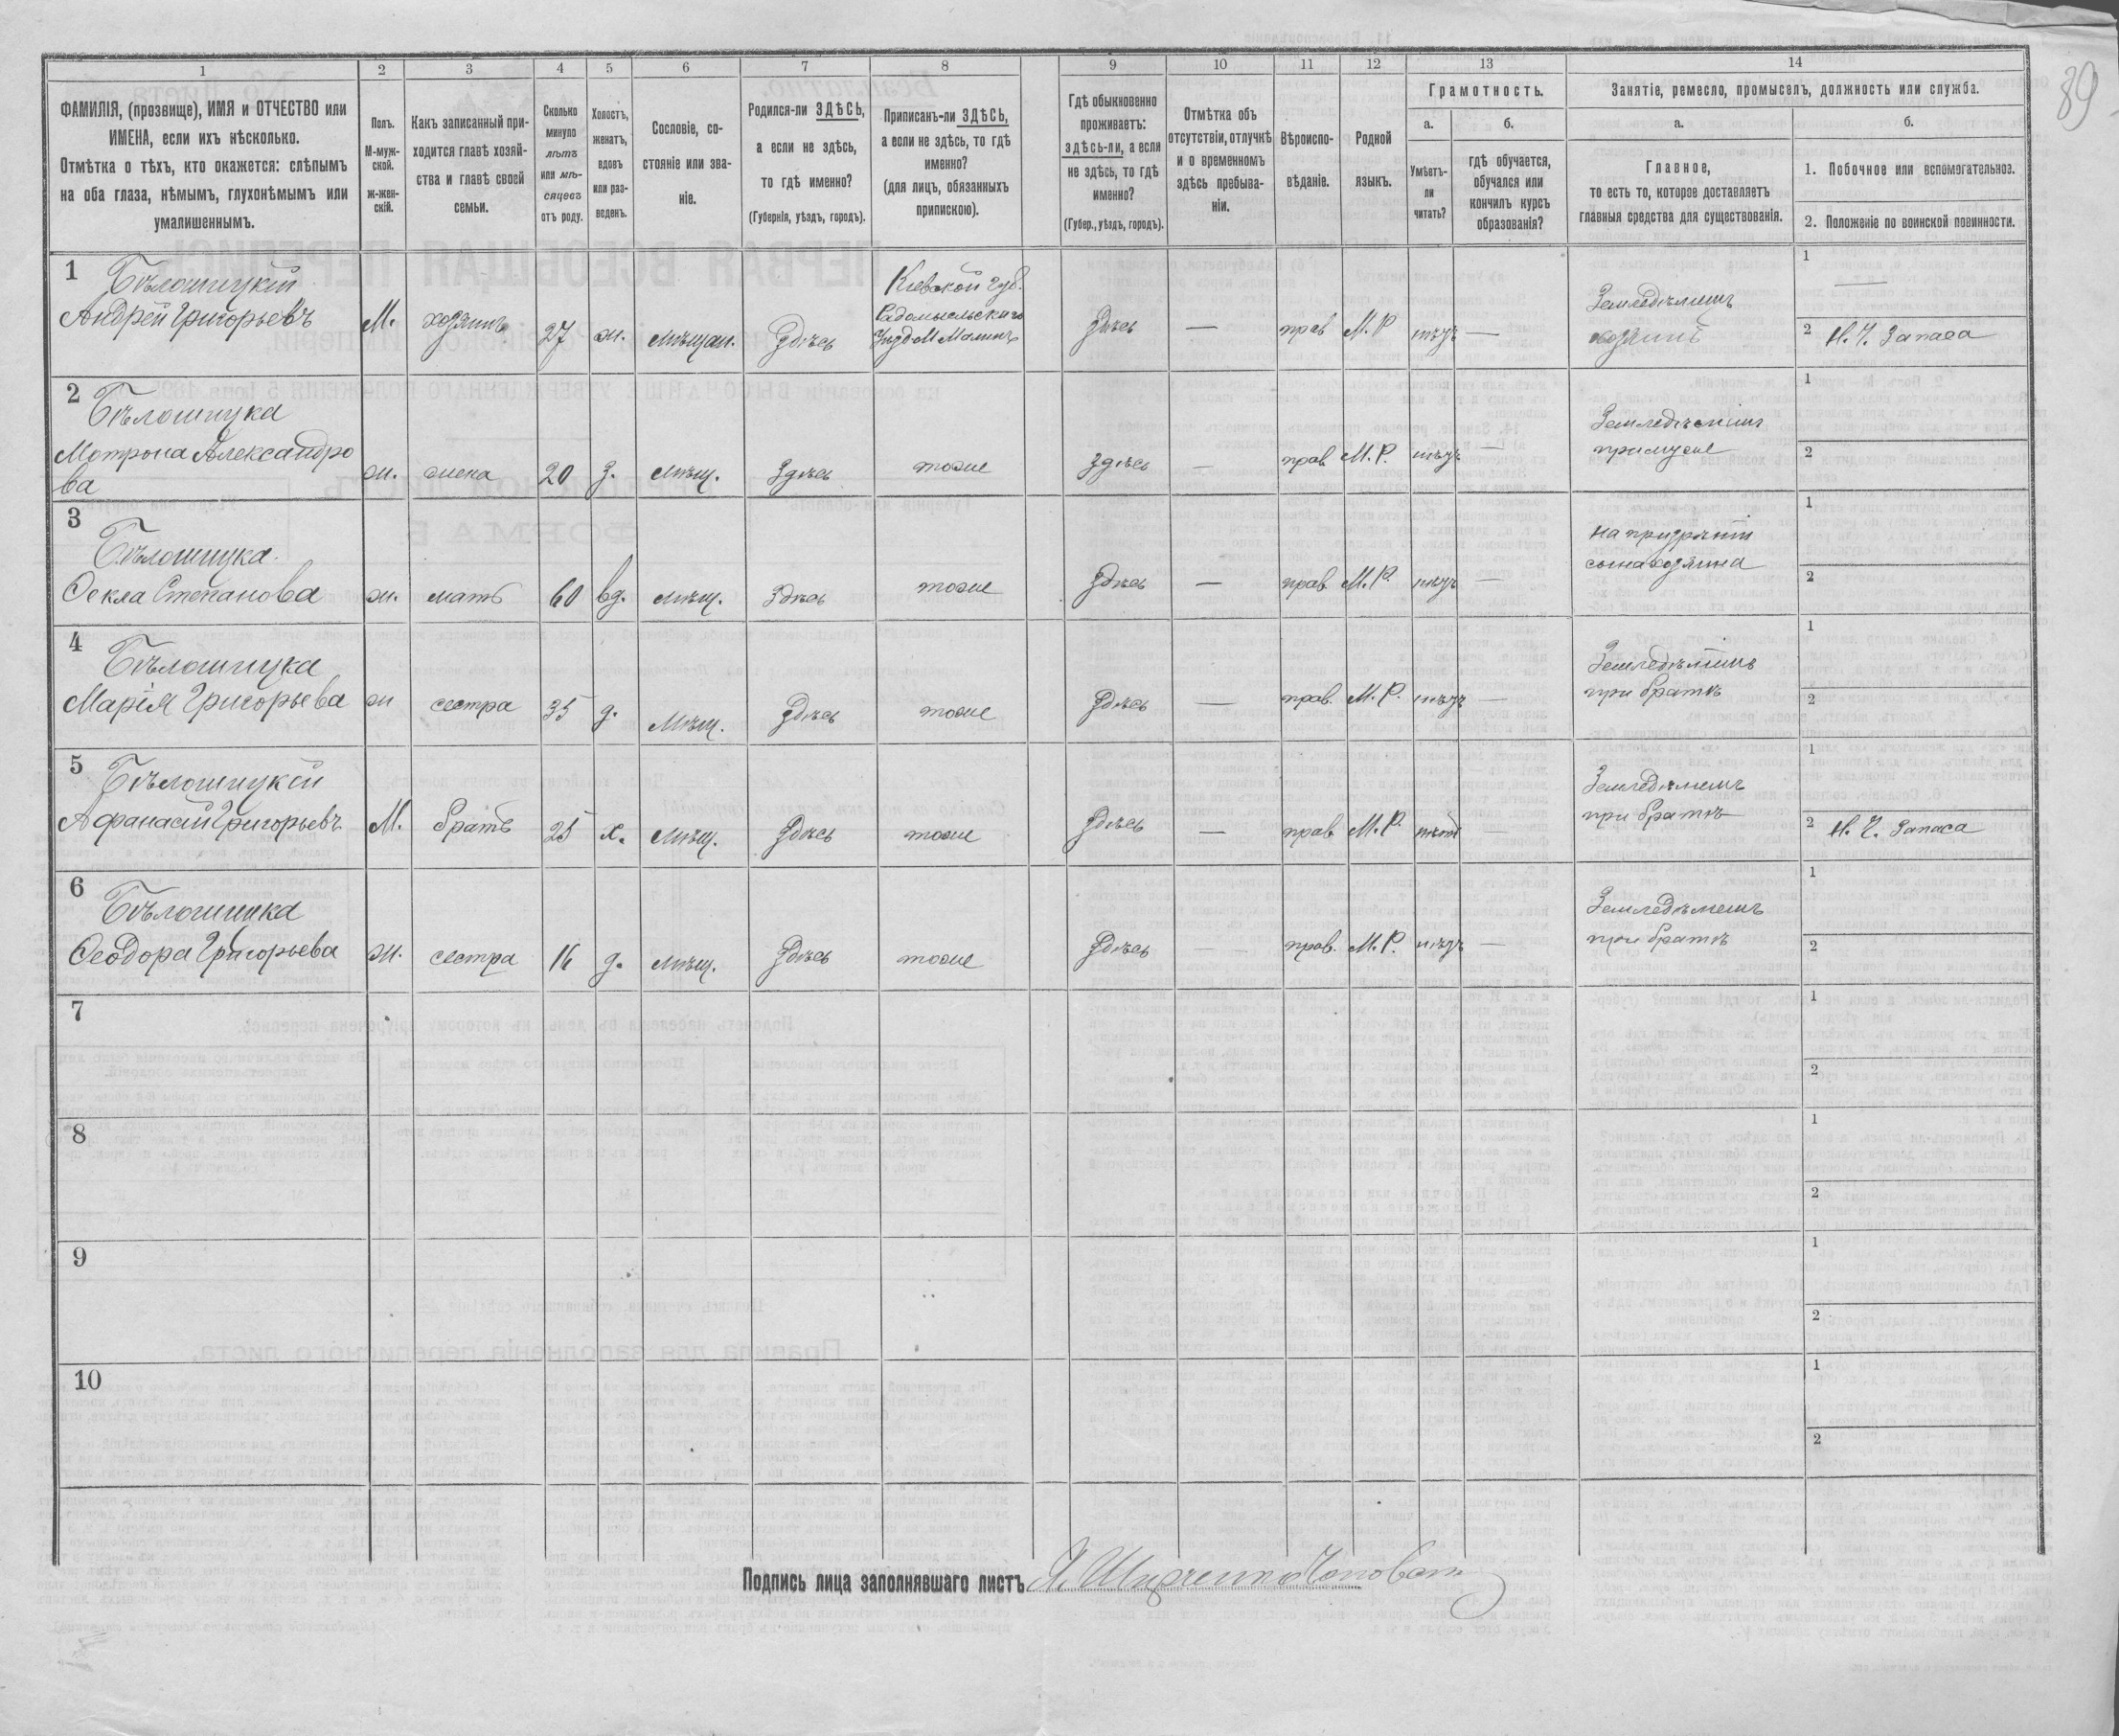 39
1 2 3 4 5 6 7 8 9 10 11 12 13 14
ФАМИЛІЯ, (прозвище), ИМЯ и ОТЧЕСТВО или
ИМЕНА, если ихъ нѣсколько.
Отмѣтка о тѣхъ, кто окажется: слѣпымъ
на оба глаза, нѣмымъ, глухонѣмымъ или
умалишеннымъ.
Полъ.
М-муж-
ской.
ж-жен-
скій.
Какъ записанный при-
ходится главѣ хозяй-
ства и главѣ своей
семьи.
Сколько
минуло
лѣтъ
или мѣ-
сяцевъ
отъ роду.
Холостъ,
женатъ,
вдовъ
или раз-
веденъ.
Сословіе, со-
стояніе или зва-
ніе.
Родился-ли ЗДѢСЬ,
а если не здѣсь,
то гдѣ именно?
(Губернія, уѣздъ, городъ).
Приписанъ-ли ЗДѢСЬ,
а если не здѣсь, то гдѣ
именно?
(для лицъ, обязанныхъ
припискою).
Гдѣ обыкновенно
проживаетъ:
здѣсь-ли, а если
не здѣсь, то гдѣ
именно?
(Губер., уѣздъ, городъ).
Отмѣтка объ
отсутствіи, отлучкѣ
и о временномъ
здѣсь пребыва-
ніи.
Вѣроиспо-
вѣданіе.
Родной
языкъ.
Грамотность.
а.
Умѣетъ-
ли
читать?
б.
гдѣ обучается,
обучался или
кончилъ курсъ
образованія?
Занятіе, ремесло, промыселъ, должность или служба.
а.
Главное,
то есть то, которое доставляетъ
главныя средства для существованія.
б.
1. Побочное или вспомогательное.
2. Положеніе по воинской повинности.
1 Бѣлошицкій
Андрей Григорьевъ
М. хозяинъ 27 ж. мѣщан. Здѣсь
Кіевской губ.
Радомысльскаго
Уѣзд М Малинъ
Здѣсь — прав М.Р нѣтъ —
Земледѣлецъ
хозяинъ
1 —
2 Н. Ч. Запаса
2 Бѣлошицка
Мотрона Александро
ва
ж. жена 20 з. мѣщ. Здѣсь тоже здѣсь — прав М.Р. нѣтъ —
Земледѣлецъ
при мужѣ
1
2
3 Бѣлошицка
Ѳекла Степанова ж. мать 60 вд. мѣщ. Здѣсь тоже Здѣсь — прав М.Р. нѣтъ —
на
сына хозяина
1
2
4 Бѣлошицка
Марія Григорьева ж сестра 35 д. Мѣщ. Здѣсь тоже Здѣсь — прав. М.Р. нѣтъ —
Земледѣлецъ
при братѣ
1
2
5 Бѣлошицкій
Афанасій Григорьевъ М. братъ 25 х. мѣщ. Здѣсь тоже Здѣсь — прав М.Р. нѣтъ
Земледѣлецъ
при братѣ
1
2 Н. Ч. Запаса
6 Бѣлошицка
Ѳеодора Григорьева ж. сестра 16 д. мѣщ. Здѣсь тоже Здѣсь — прав. М.Р. нѣтъ —
Земледѣлецъ
при братѣ
1
2
7
1
2
8
1
2
9
1
2
10
1
2
Подпись лица заполнявшаго листъ